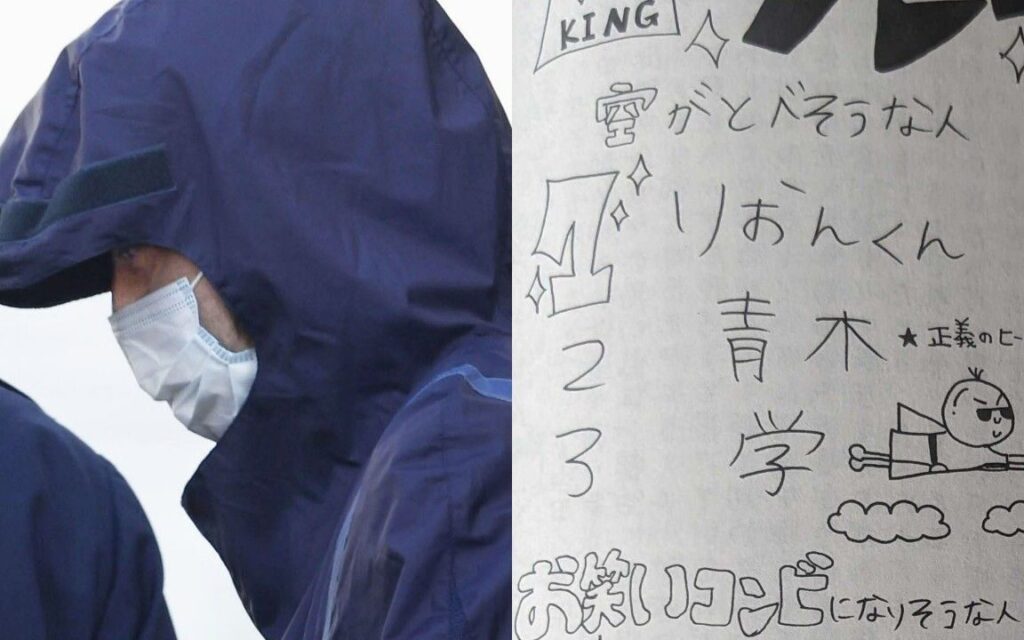 KING
空がとべそうな人
1 りおんくん
2 青木
★正義のヒー
3 学
お笑いコンビになりそうな人